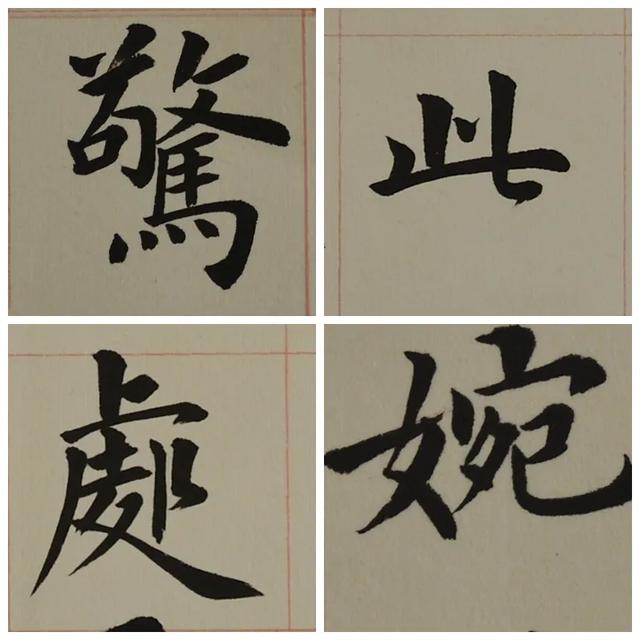 驚此
處婉